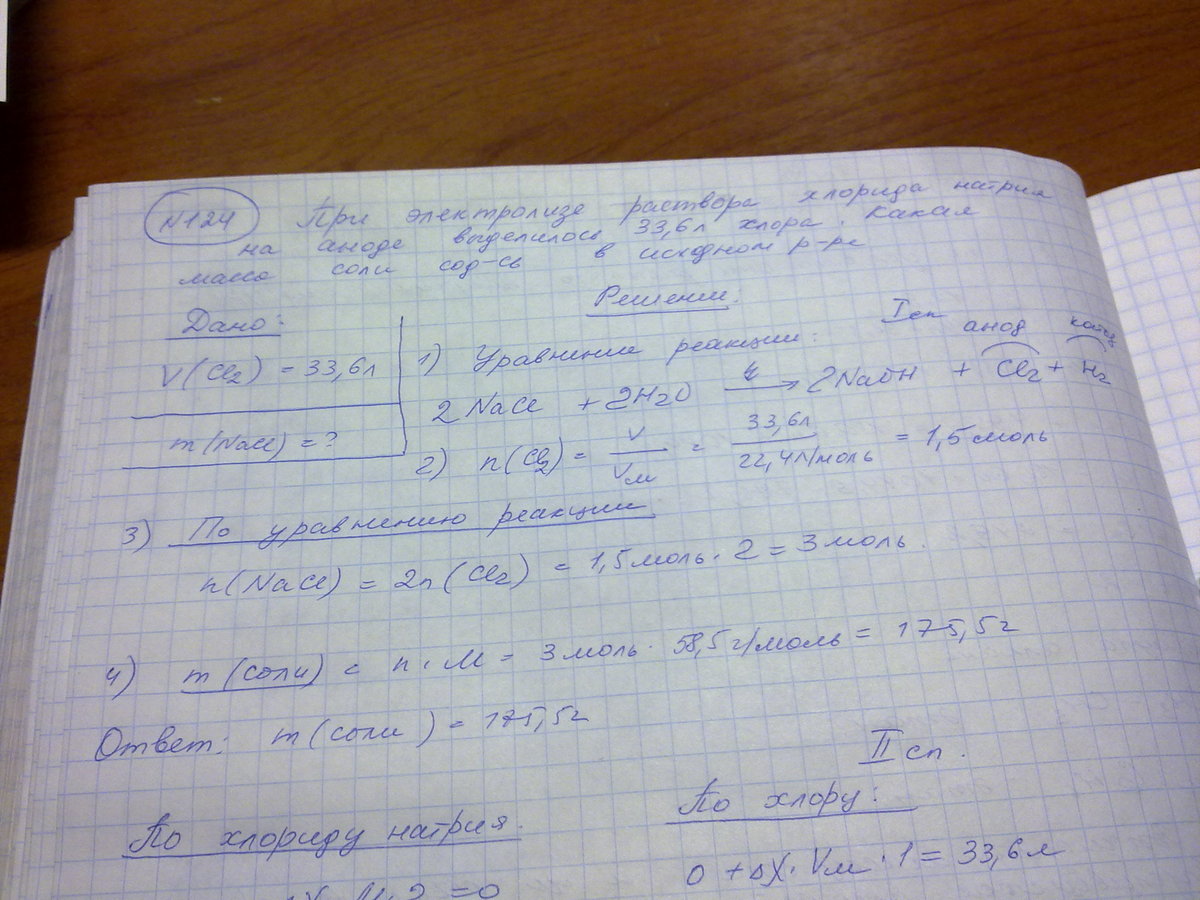 N124 При электролизе раствора хлорида натрия
на аноде выделилось 33,6л хлора. Какая
масса соли сод-сь в исходном р-ре
Решение:
Дано:
V(Cl₂) = 33,6л
m(NaCl) = ?
I сп
1) Уравнение реакции:
анод катод
2NaCl + 2H₂O → 2NaOH + Cl₂ + H₂
2) n(Cl₂) = V/Vм = 33,6л/22,4л/моль = 1,5моль
3) По уравнению реакции
n(NaCl) = 2n(Cl₂) = 1,5моль · 2 = 3моль.
4) m(соли) = n · M = 3моль · 58,5г/моль = 175,5г
Ответ: m(соли) = 175,5г
II сп.
По хлориду натрия.
По хлору:
0 + ΔX · Vм · 1 = 33,6л
M · 2 = 0